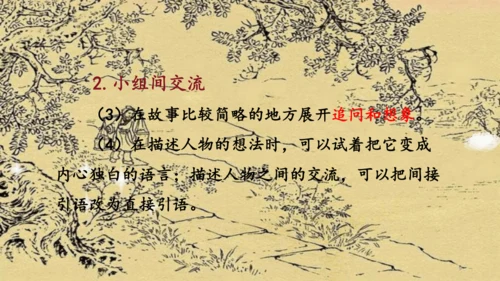 2.小组间交流
（3）在故事比较简略的地方展开追问和想象。
（4）在描述人物的想法时，可以试着把它变成
内心独白的语言；描述人物之间的交流，可以把间接
引语改为直接引语。